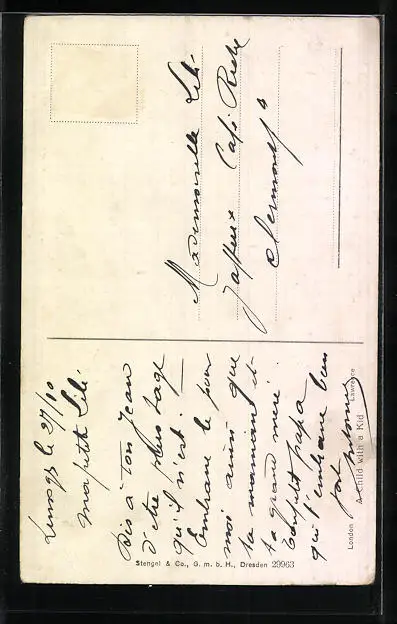 Mademoiselle Lili
Café Riche
Clermont
Limoges le 27/10
Ma petite Lili
Dis à ton Jean
d'être plus sage
qu'il n'est.
Embrasse le pour
moi ainsi que
ta maman et
ta grand mère.
Ton petit papa
qui t'embrasse bien
fort
London
A Child with a Kid
Lawrence
Stengel & Co., G. m. b. H., Dresden 29963